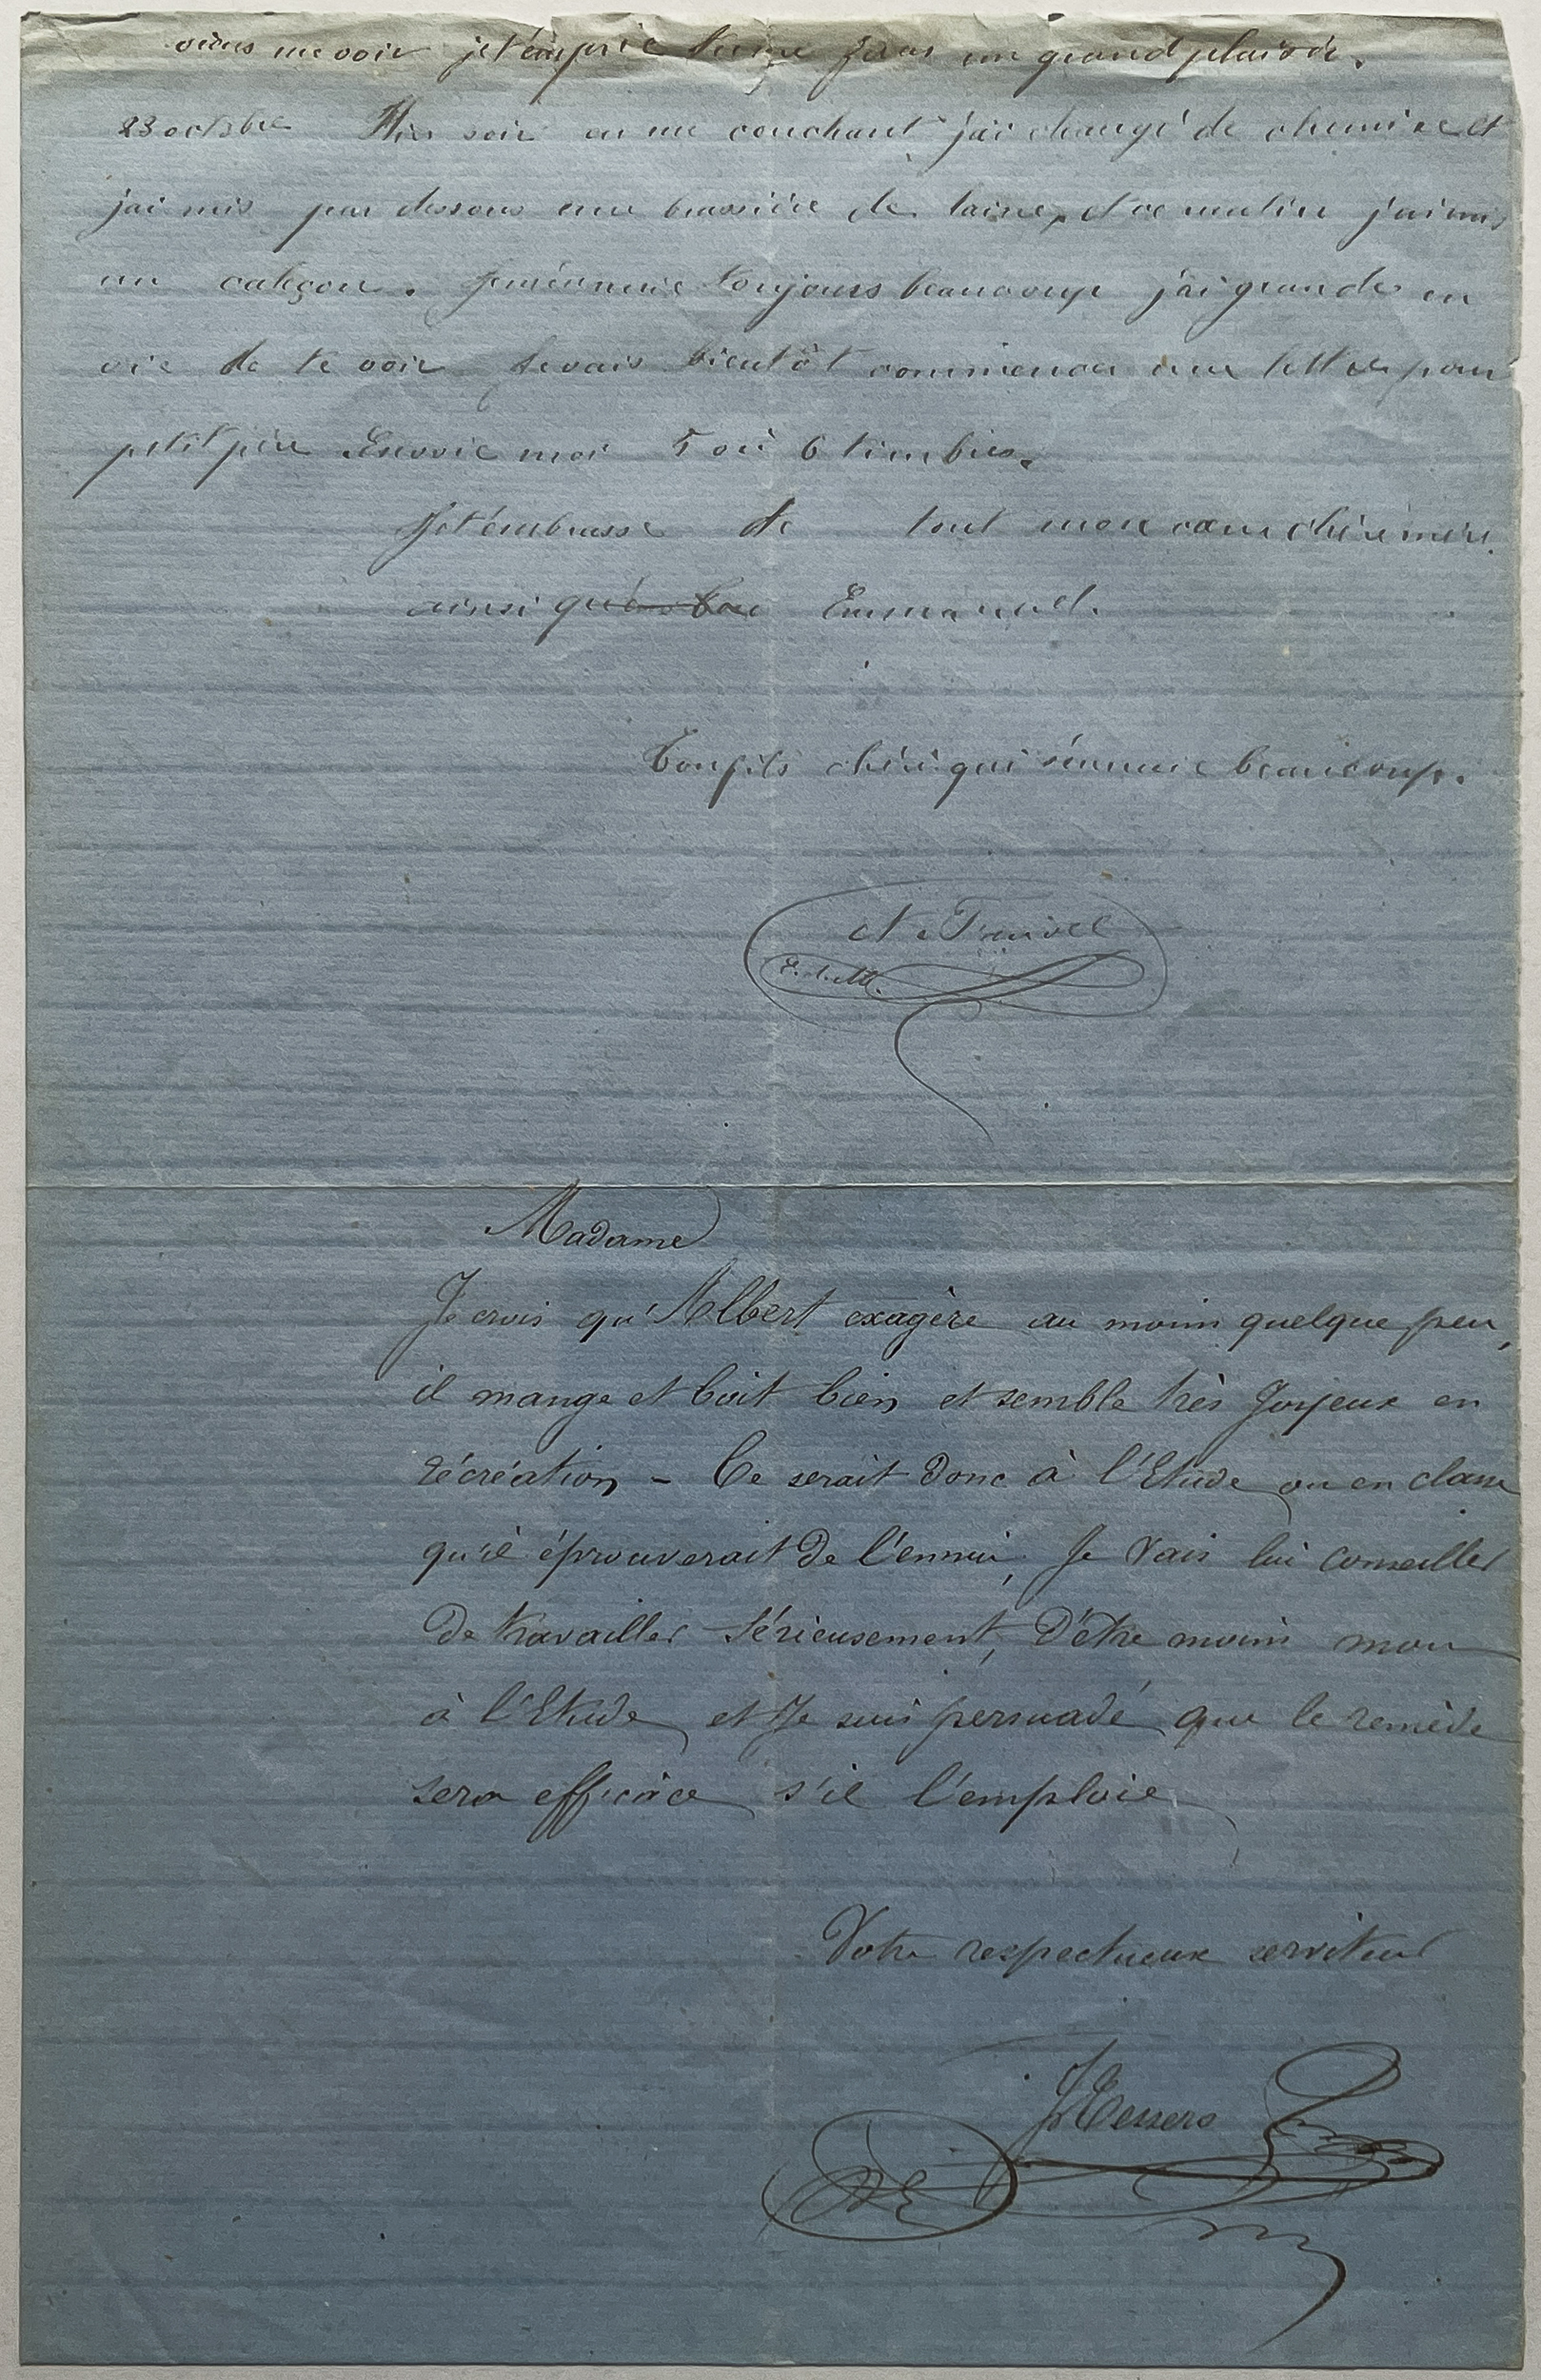 viens me voir je t'en prie tu me feras un grand plaisir.
23 octobre Hier soir en me couchant j'ai changé de chemise et
j'ai mis par dessous une brassière de laine, et ce matin j'ai mis
un caleçon. Je m'ennuie toujours beaucoup j'ai grande en
vie de te voir Je vais bientôt commencer une lettre pour
petit père Envoie moi 5 ou 6 timbres.
Je t'embrasse de tout mon cœur chère mère
ainsi qu' Emmanuel.
Ton fils chéri qui s'ennuie beaucoup.
A
Madame
Je crois qu'Albert exagère au moins quelque peu,
il mange et boit bien et semble très Joyeux en
récréation - Ce serait donc à l'Etude ou en classe
qu'il éprouverait de l'ennui, Je vais lui conseiller
de travailler sérieusement, d'être moins mou
à l'Etude et Je suis persuadé que le remède
sera efficace s'il l'emploie
Votre respectueux serviteur